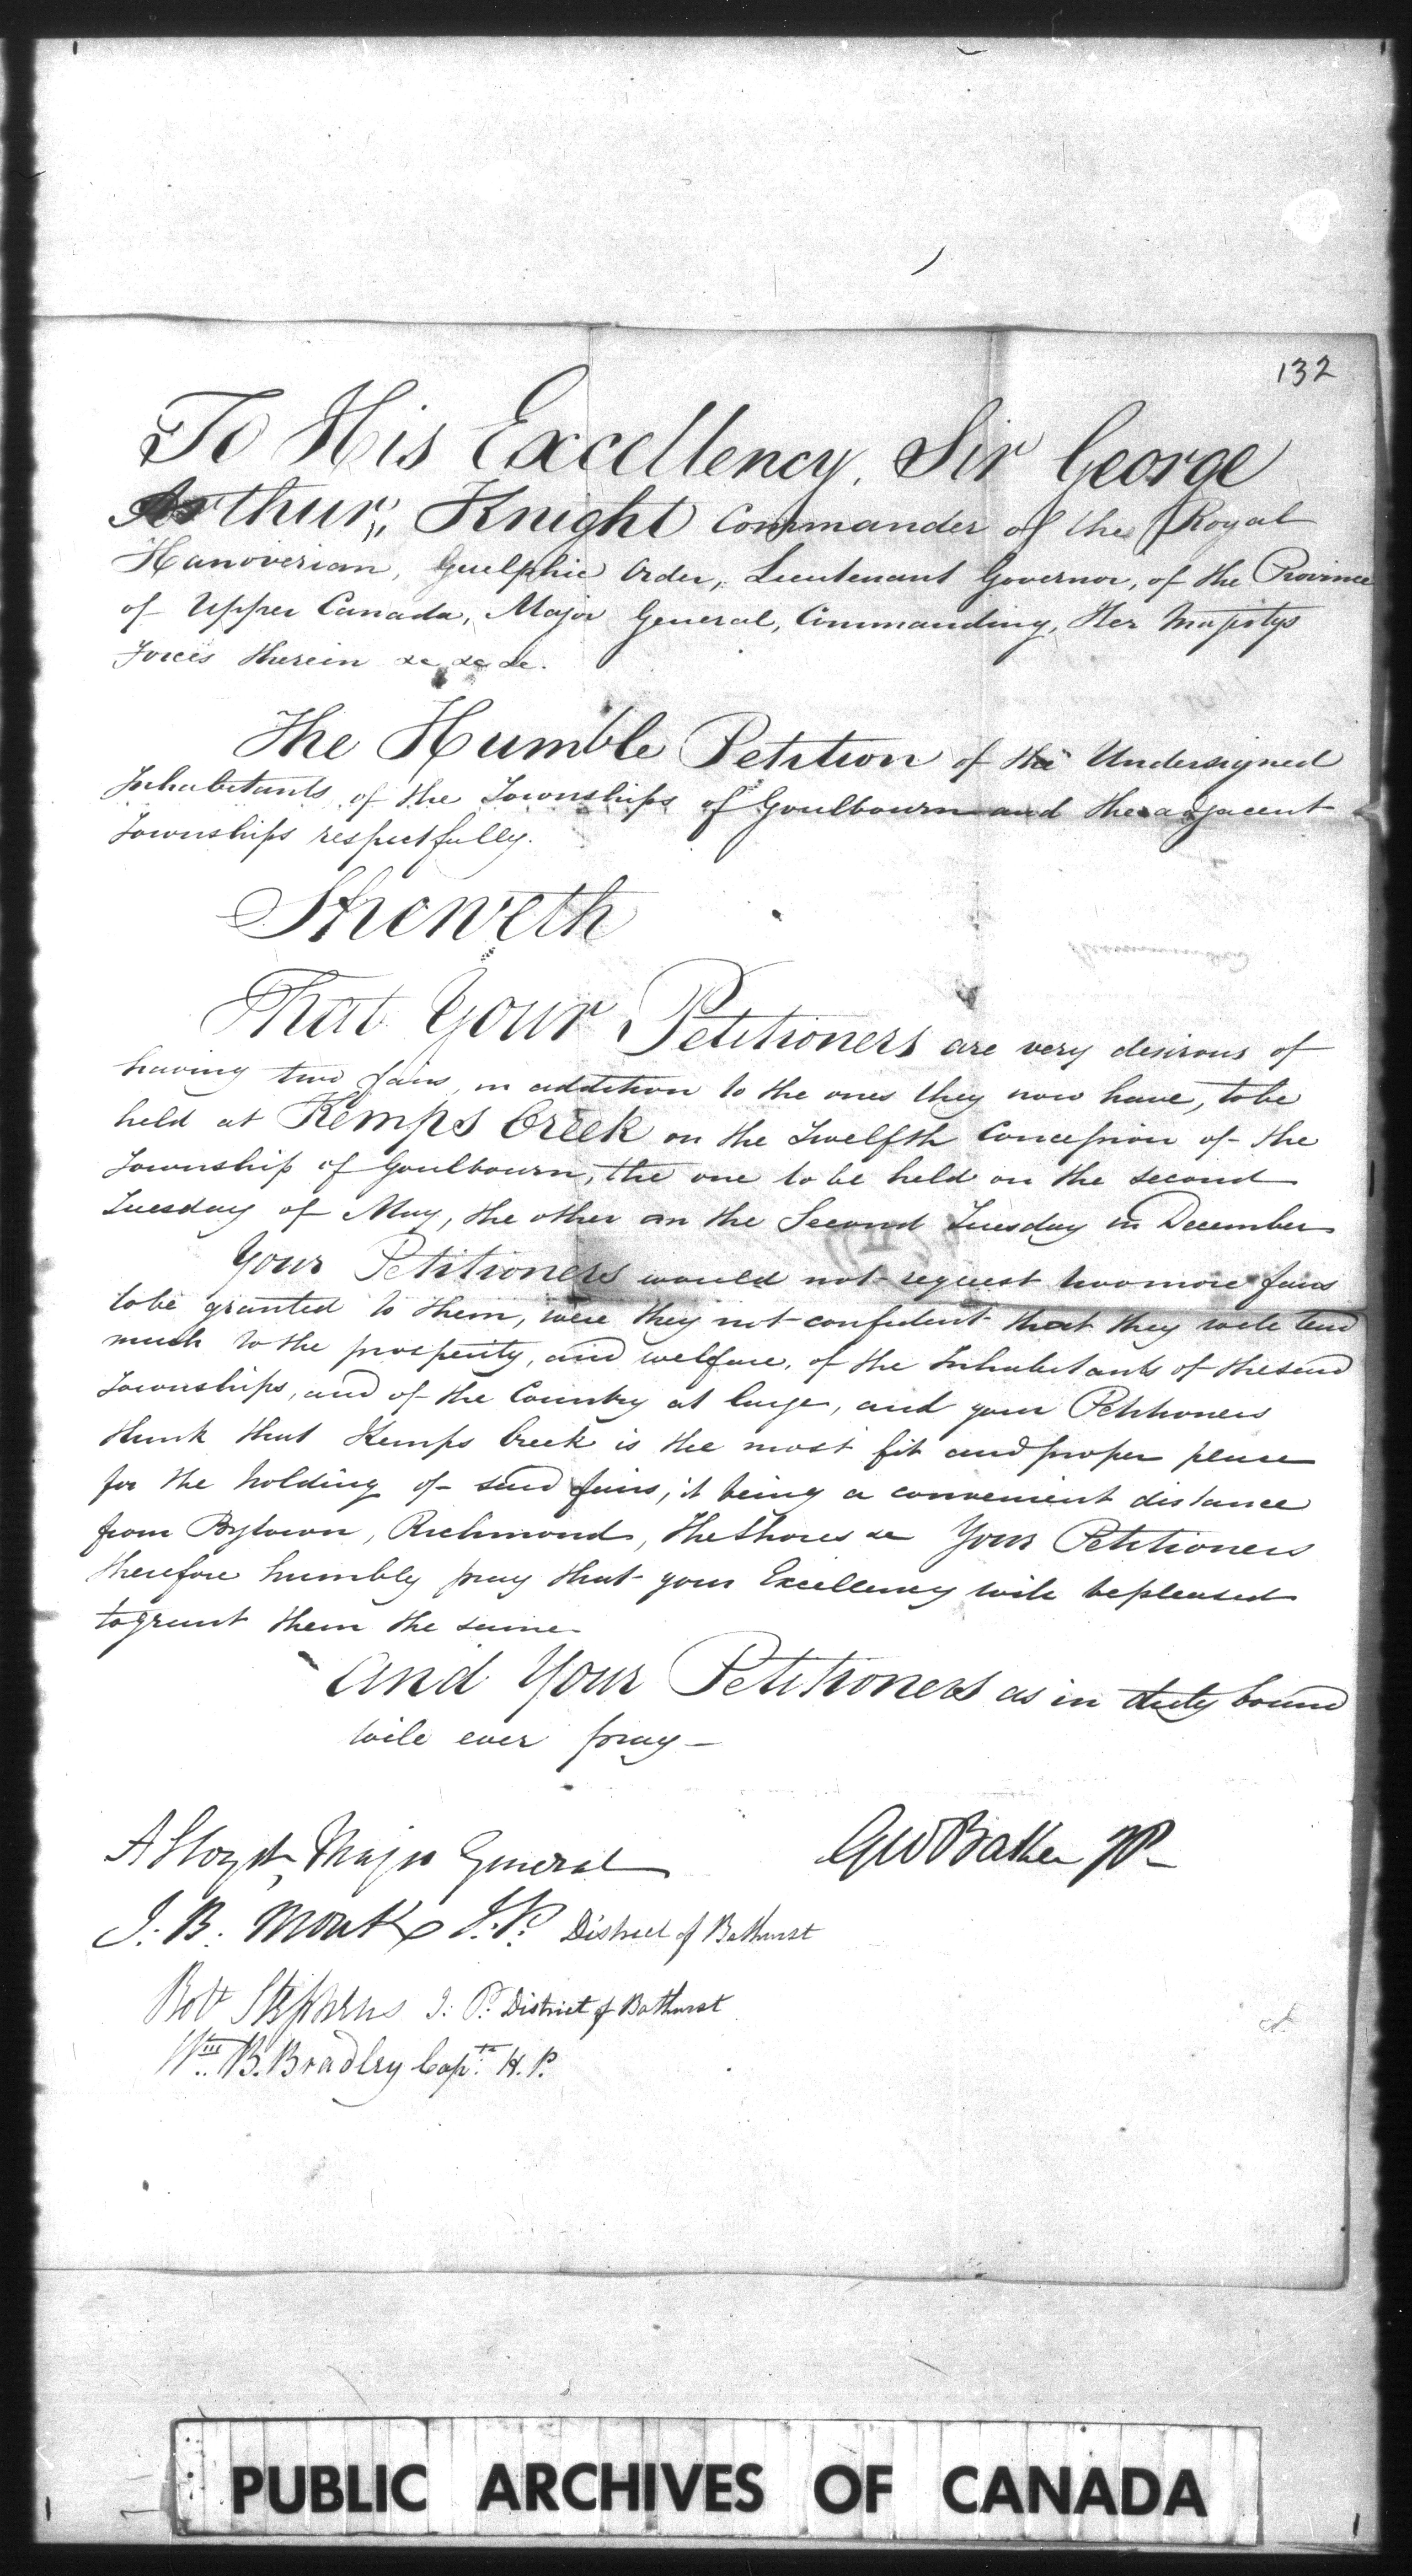 132
To His Excellency, Sir George
Arthur, Knight Commander of the Royal
Hanoverian, Guelphic Order, Lieutenant Governor, of the Province
of Upper Canada, Major General, Commanding, Her Majestys
Forces therein &c &c &c.
The Humble Petition of the Undersigned
Inhabitants of the Townships of Goulbourn and the adjacent
Townships respectfully.
Sheweth
That Your Petitioners are very desirous of
having two fairs, in addition to the ones they now have, to be
held at Kemps Creek on the Twelfth Concession of the
Township of Goulbourn, the one to be held on the second
Tuesday of May, the other on the Second Tuesday in December
Your Petitioners would not request two more fairs
to be granted to them, were they not confident that they will tend
much to the prosperity, and welfare, of the Inhabitants of the said
Townships, and of the Country at large, and your Petitioners
think that Kemps Creek is the most fit and proper place
for the holding of said fairs, it being a convenient distance
from Bytown, Richmond, the Shores &c Your Petitioners
therefore humbly pray that your Excellency will be pleased
to grant them the same
And Your Petitioners as in duty bound
will ever pray —
A Lloyd, Major General
GW Baker JP
J. B. Monk J.P. District of Bathurst
Robt Stephens J. P. District of Bathurst
Wm. B. Bradley Capt. H. P.
PUBLIC ARCHIVES OF CANADA